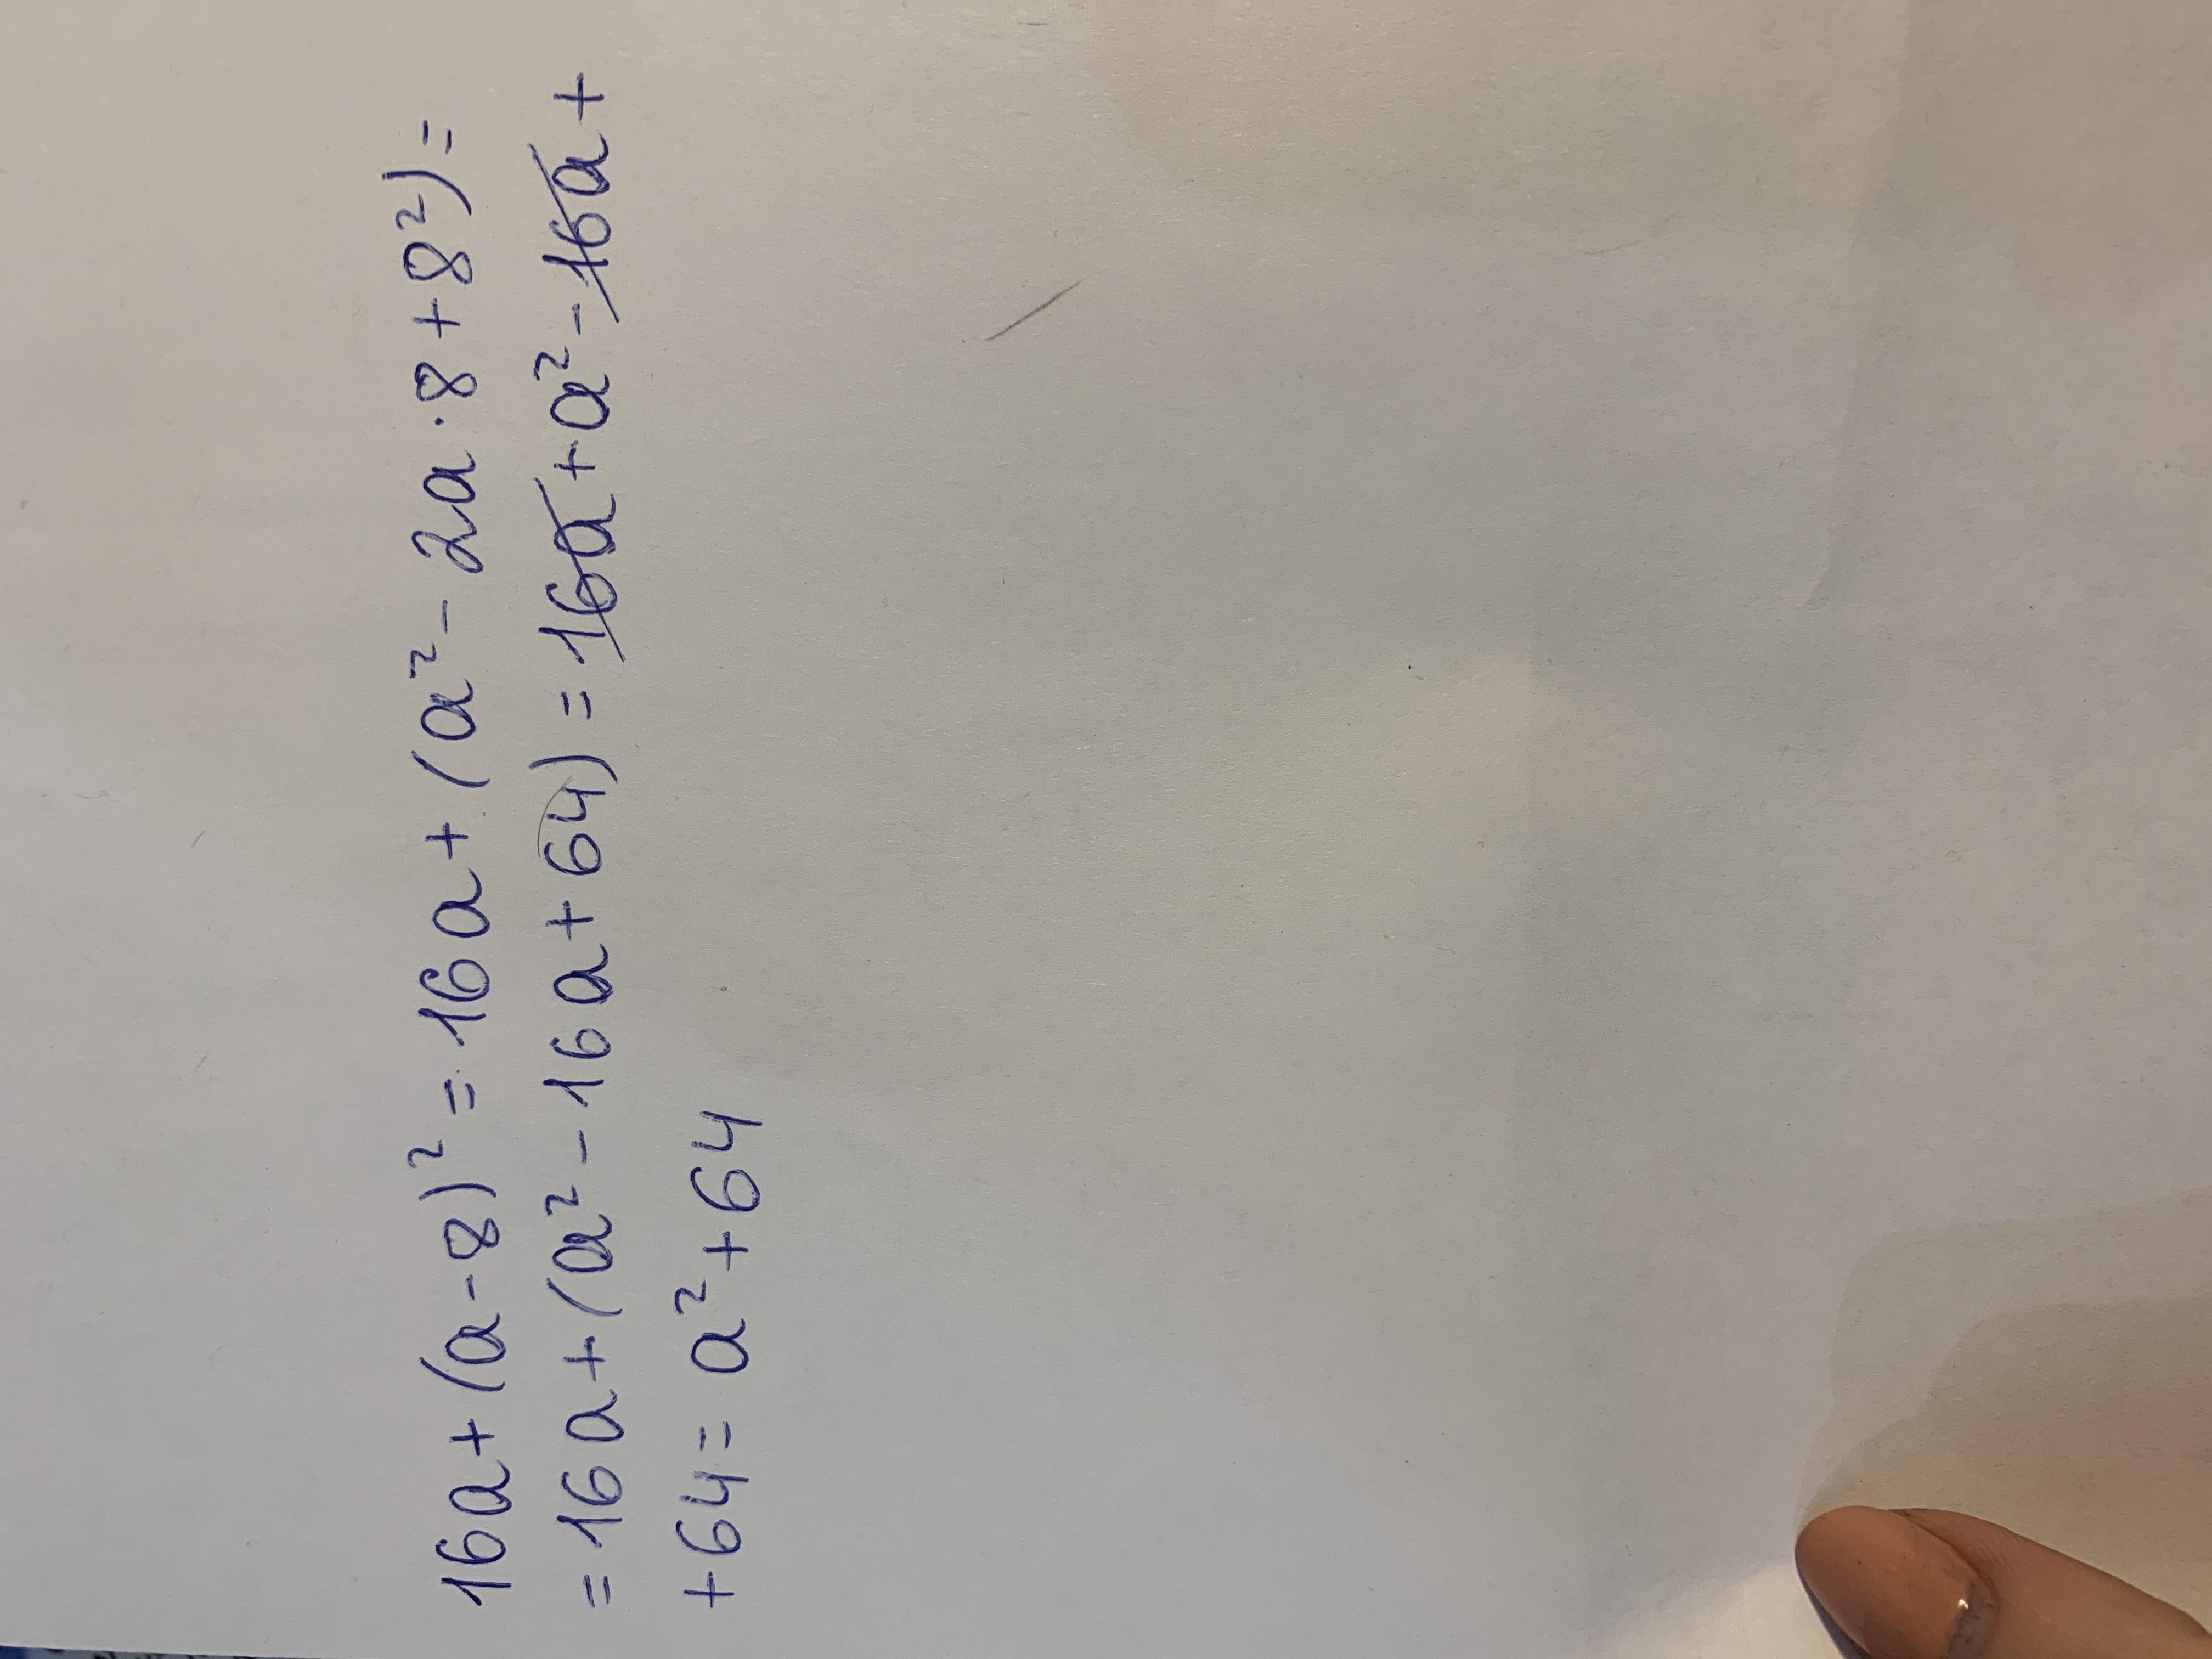 16a+(a-8)²=16a+(a²-2a·8+8²)=
=16a+(a²-16a+64)=16a+a²-16a+
+64=a²+64